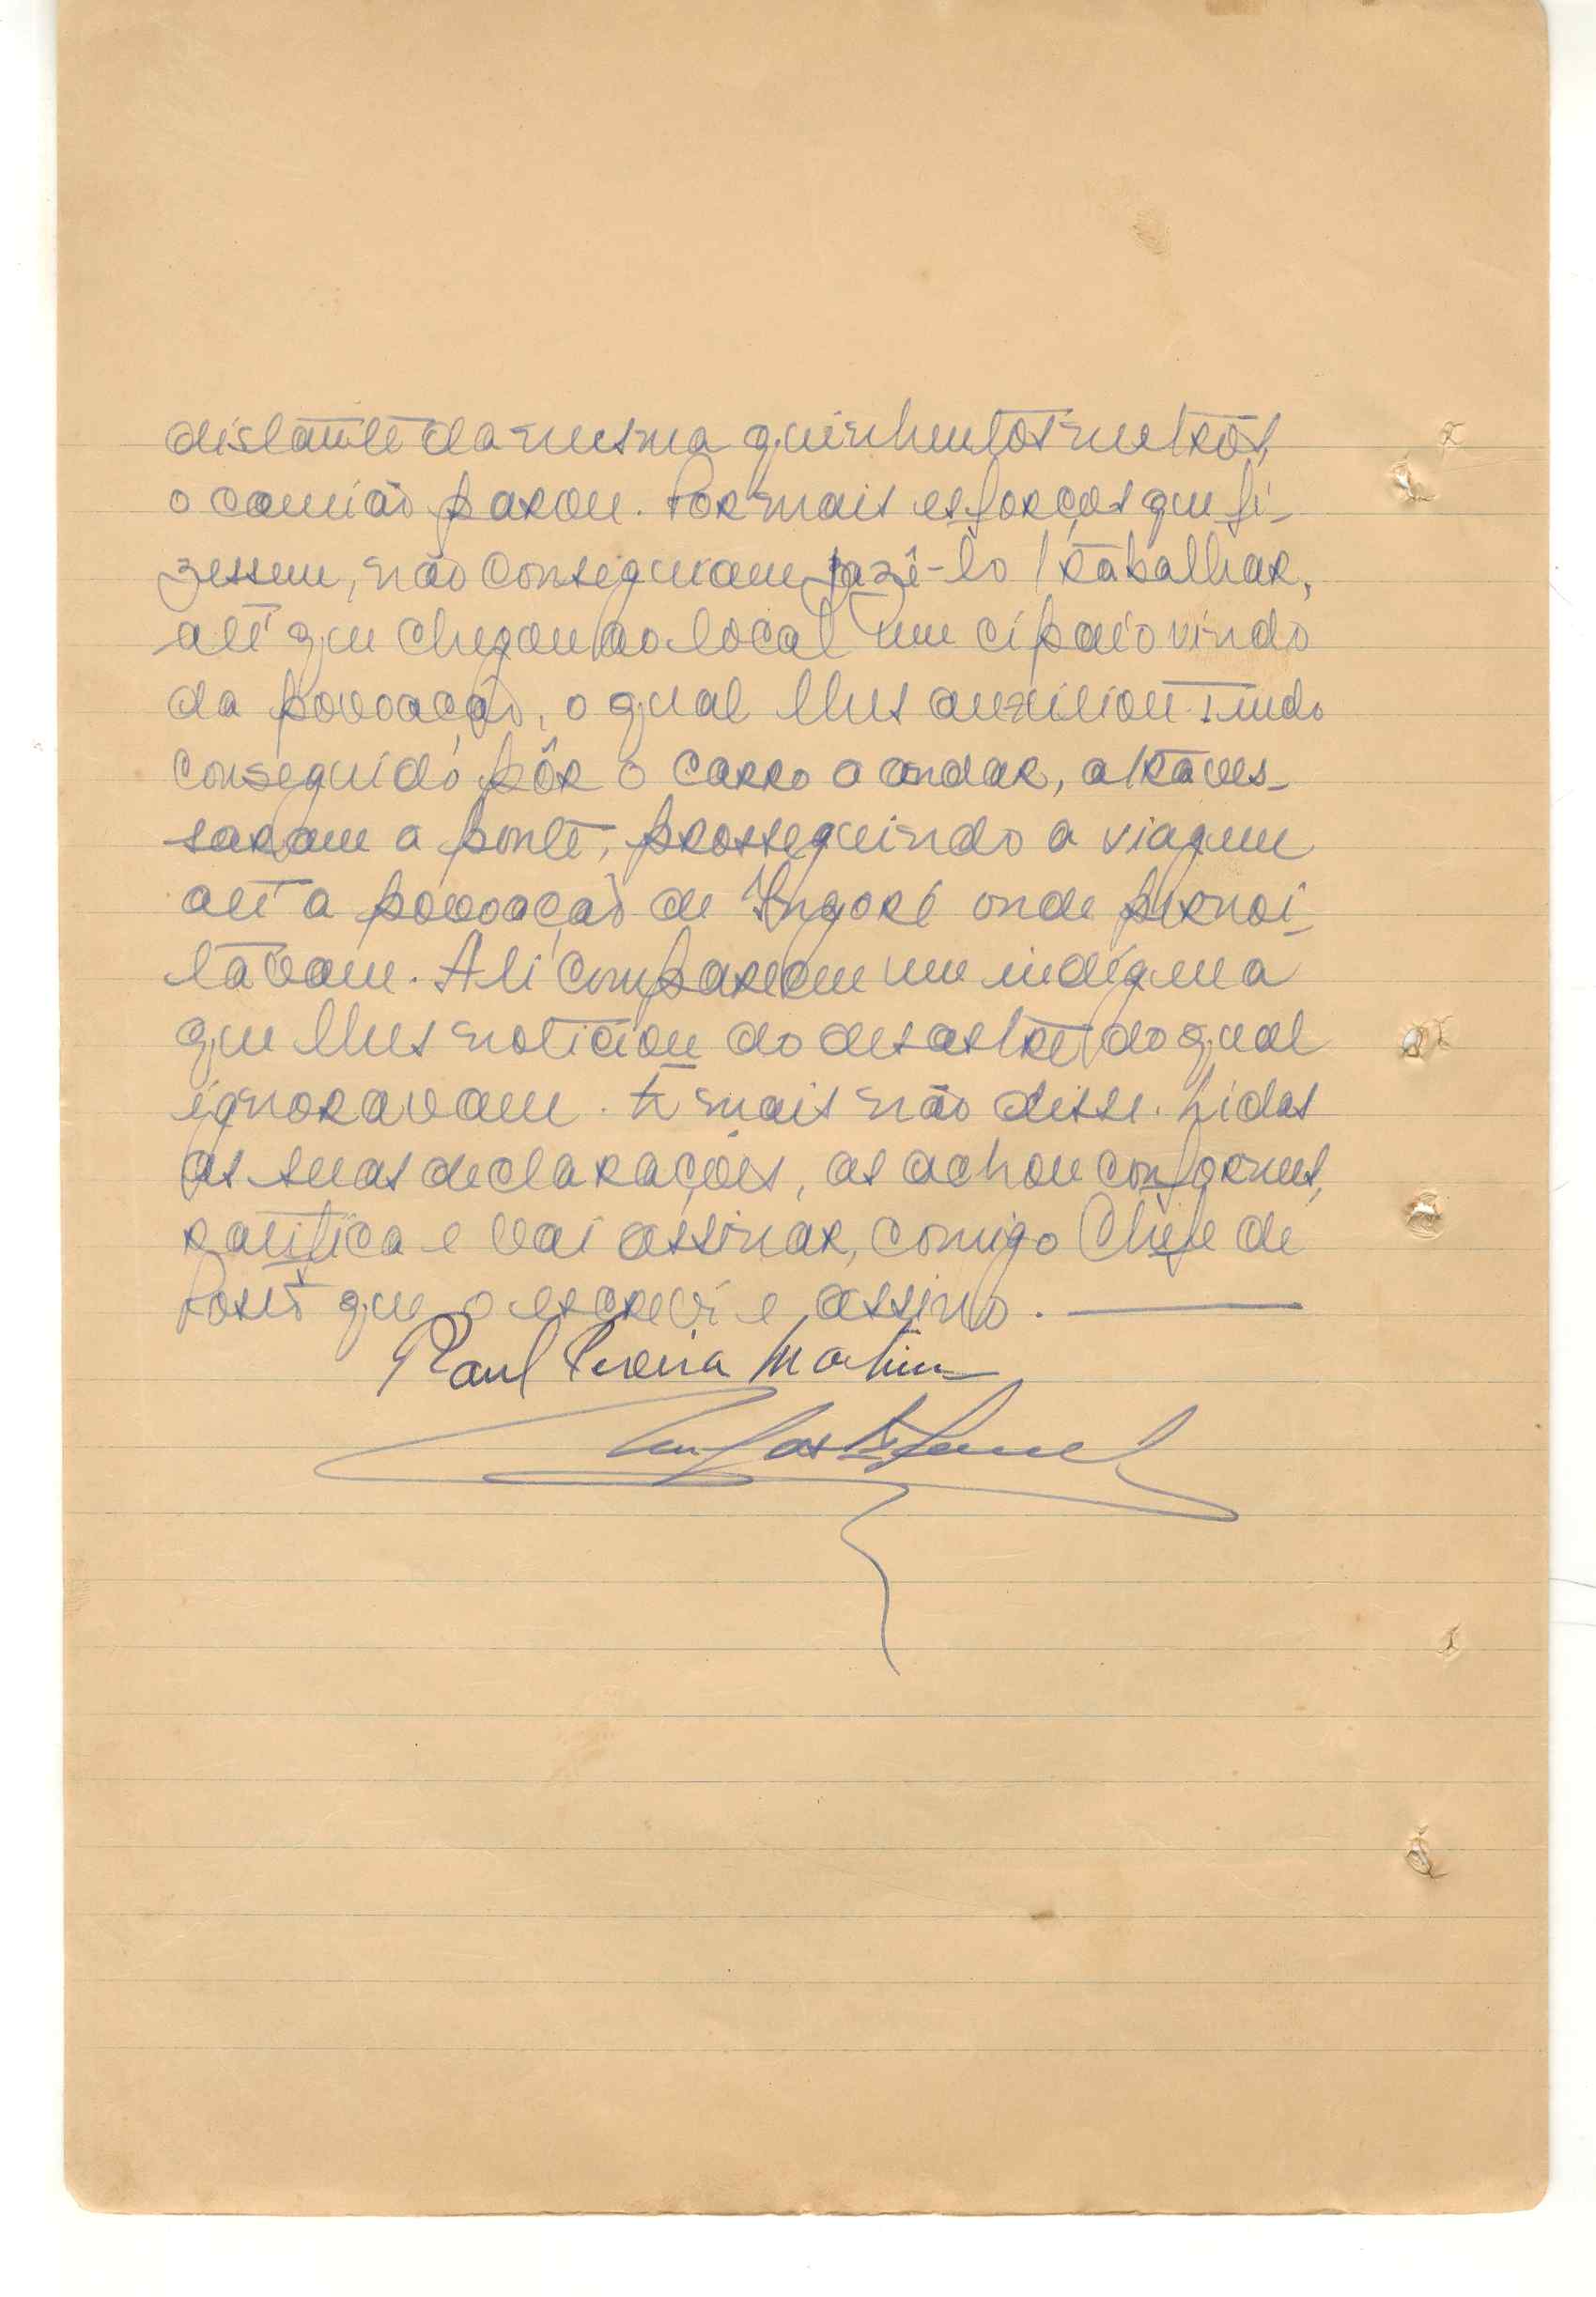 distante da mesma quinhentos metros,
o camião parou. Por mais esforços que fi-
zessem, não conseguiram fazê-lo trabalhar,
até que chegou ao local um cipaio vindo
da povoação, o qual lhes auxiliou. Tendo
conseguido pôr o carro a andar, atraves-
saram a ponte, prosseguindo a viagem
até a povoação de Ingoré onde pernoi-
tavam. Ali compareceu um indígena
que lhes noticiou do desastre do qual
ignoravam. E mais não disse. Lidas
as suas declarações, as achou conformes,
ratifica e vai assinar, comigo Chefe de
Posto que o escrevi e assino.
Raul Pereira Martins